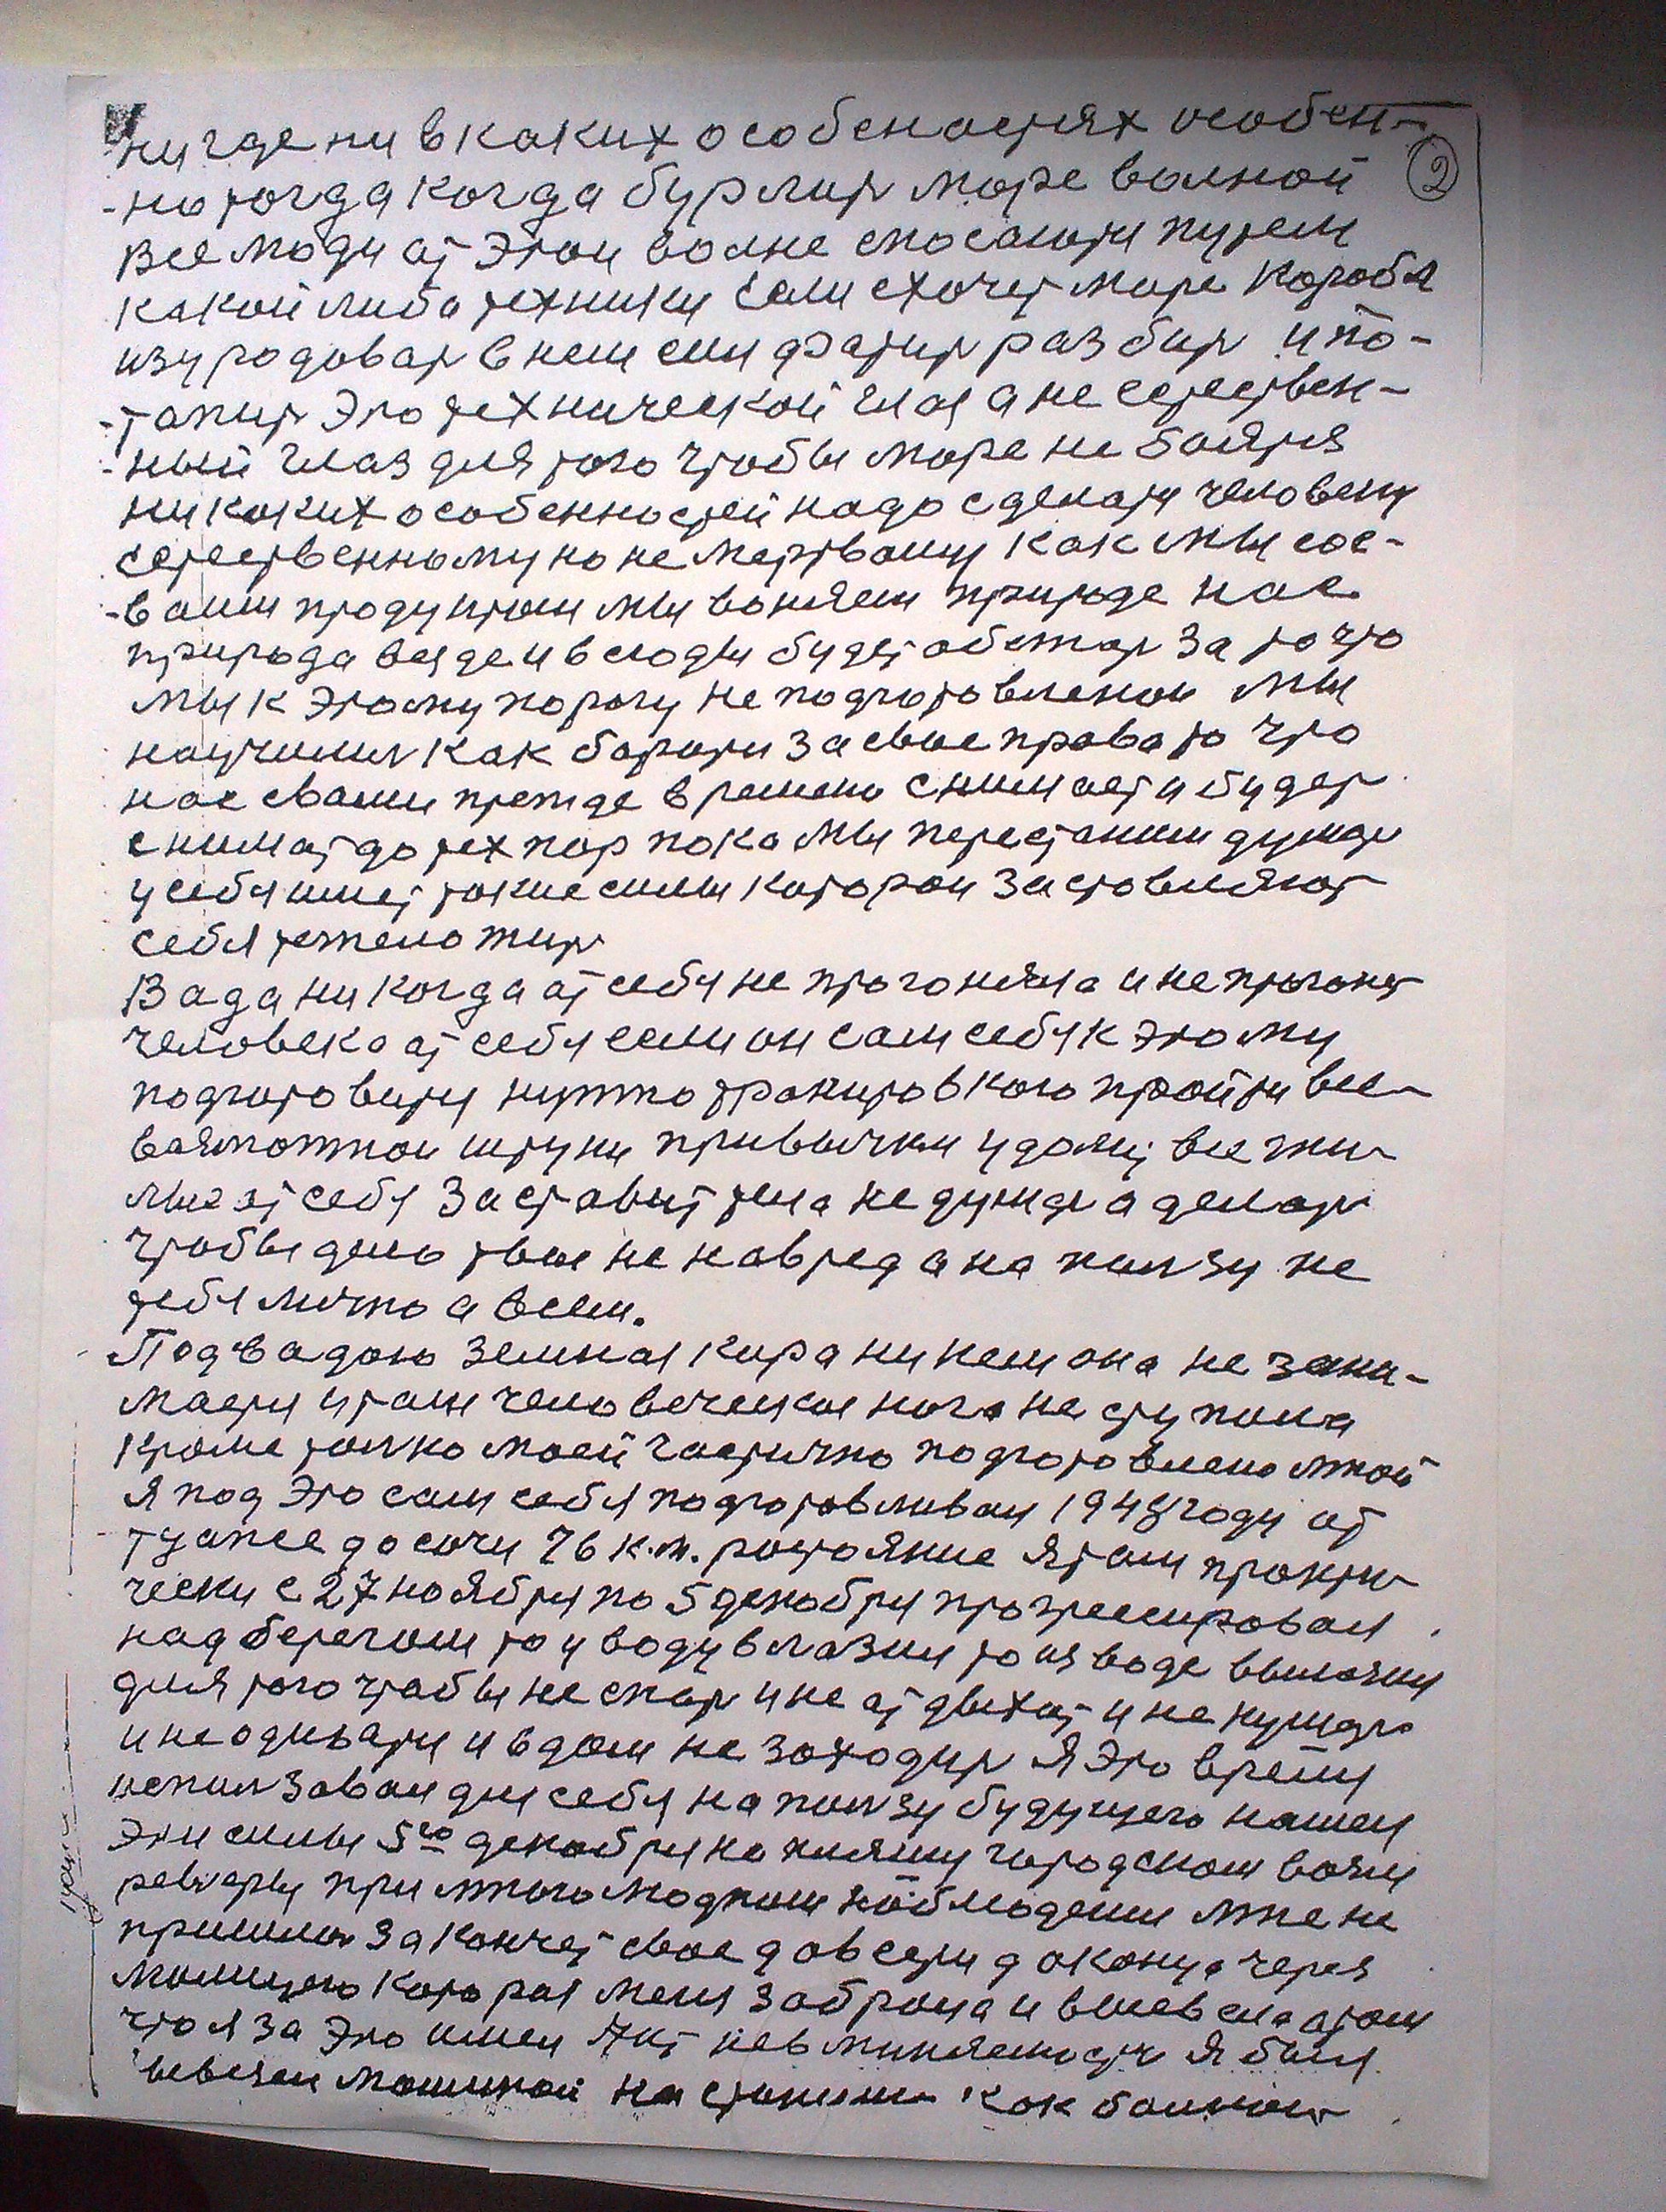 ни где ни в каких особеностях особен-
2
-но тогда когда бурлит море волной
все люди от этои волне спосаюти путем
какой либа техники если схочет море корабл
изуродоват в нем сил хватит разбит и по-
-тапит это технической глаз а не естествен-
-ный глаз для того чтобы море не боятся
никаких особенностей надо сделати человеку
естественному но не мертваму как мы сос-
-ваим продуктом мы воняем природе нас
природа везде и всюды будет обежат за то что
мы к этому порогу не подготовленои мы
научилис как баротя за свае права то что
нас сваим прежде времено снимает и будет
снимат до тех пор пока мы перестаним думат
у себя имет такие силы которои заставляют
себя тежело жит
Вада ни когда от себя не прогоняла и не прогонет
человека от себя если он сам себя к этому
подготовити нужно тренировкою пройти все
возможнои штуки привычки удалит все жи
мые от себя заставит тела не думат а делат
чтобы дело твое не навред а на ползу не
тебя лично а всем.
Под вадою земная кора ни кем она не зани-
маети и там человеческая нога не ступала
кроме толко моей частично подготовлено мной
я под это сам себя подготавливал 1948 году от
туапсе до сочи 76 к.м. растояние я там практи
чески с 27 ноября по 5 декабря прогрессировал
над берегом то у воду влазил то из воде вылазил
для того чтобы не спат и не отдыхат и не кушат
и не одивати и в дом не заходит я это время
использовал для себя на ползу будущего нашеи
эти силы 5го декабря на пляжу городском возли
ревиеры при многолюдном наблюдении мне не
пришлос закончет свое довсети до конца через
милицею которая меня забрала и вмеснла том
что я за это имел Акт невминяемости я был
ивезен машиной на станции как болнои